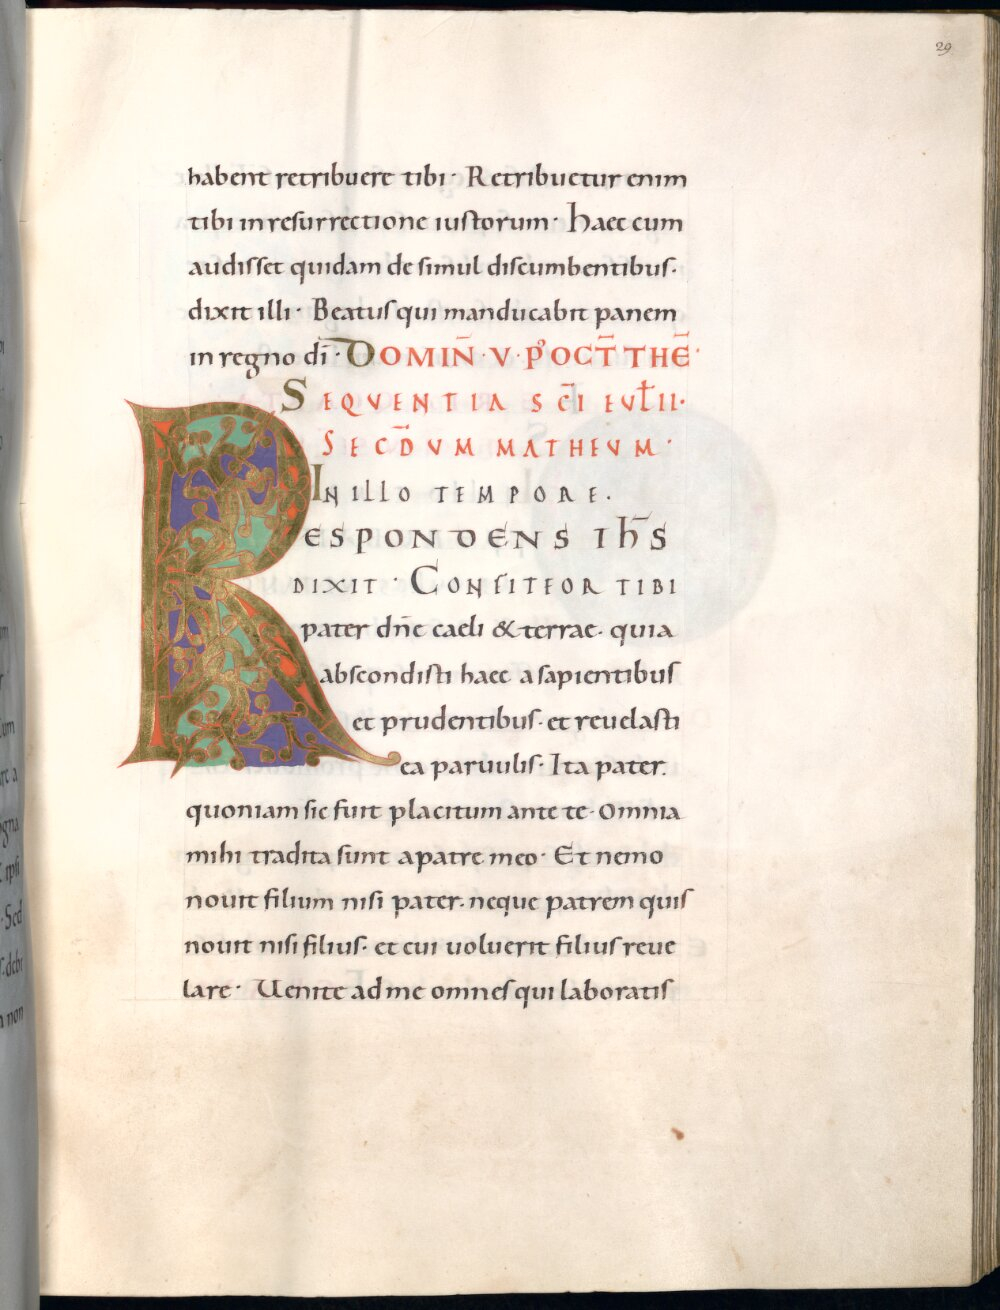 29
habent retribuere tibi · Retribuetur enim
tibi in resurrectione iustorum · Haec cum
audisset quidam de simul discumbentibus·
dixit illi · Beatus qui manducabit panem
in regno dī · DOMIN̄ · V · P' OCT̄ THĒ·
SEQVENTIA SC̄I EVt̄lII·
SEC̄DVM MATHEVM·
IN ILLO TEMPORE·
RESPONDENS IH̄S
DIXIT · CONFITEOR TIBI
pater dn̄e caeli & terrae· quia
abscondisti haec a sapientibus
et prudentibus· et reuelasti
ea paruulis· Ita pater.
quoniam sic fuit placitum ante te· Omnia
mihi tradita sunt a patre meo· Et nemo
nouit filium nisi pater· neque patrem quis
nouit nisi filius· et cui uoluerit filius reue
lare· Uenite ad me omnes qui laboratis